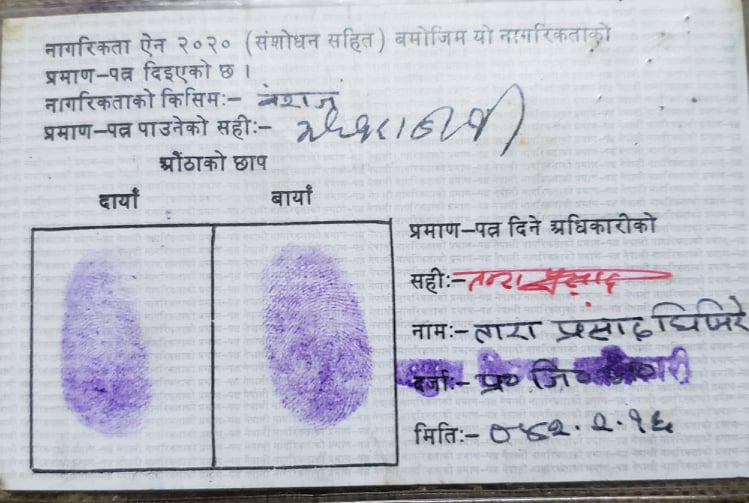 नागरिकता ऐन २०२० (संशोधन सहित) बमोजिम यो नागरिकताको
प्रमाण-पत्र दिइएको छ ।
नागरिकताको किसिम:- वंशज
प्रमाण-पत्र पाउनेको सही:-
औंठाको छाप
दायाँ
बायाँ
प्रमाण-पत्र दिने अधिकारीको
सही:- तारा प्रसाद
नाम:- तारा प्रसाद घिमिरे
दर्जा:- प्र० जि० अ०
मिति:- ०५२.२.१६